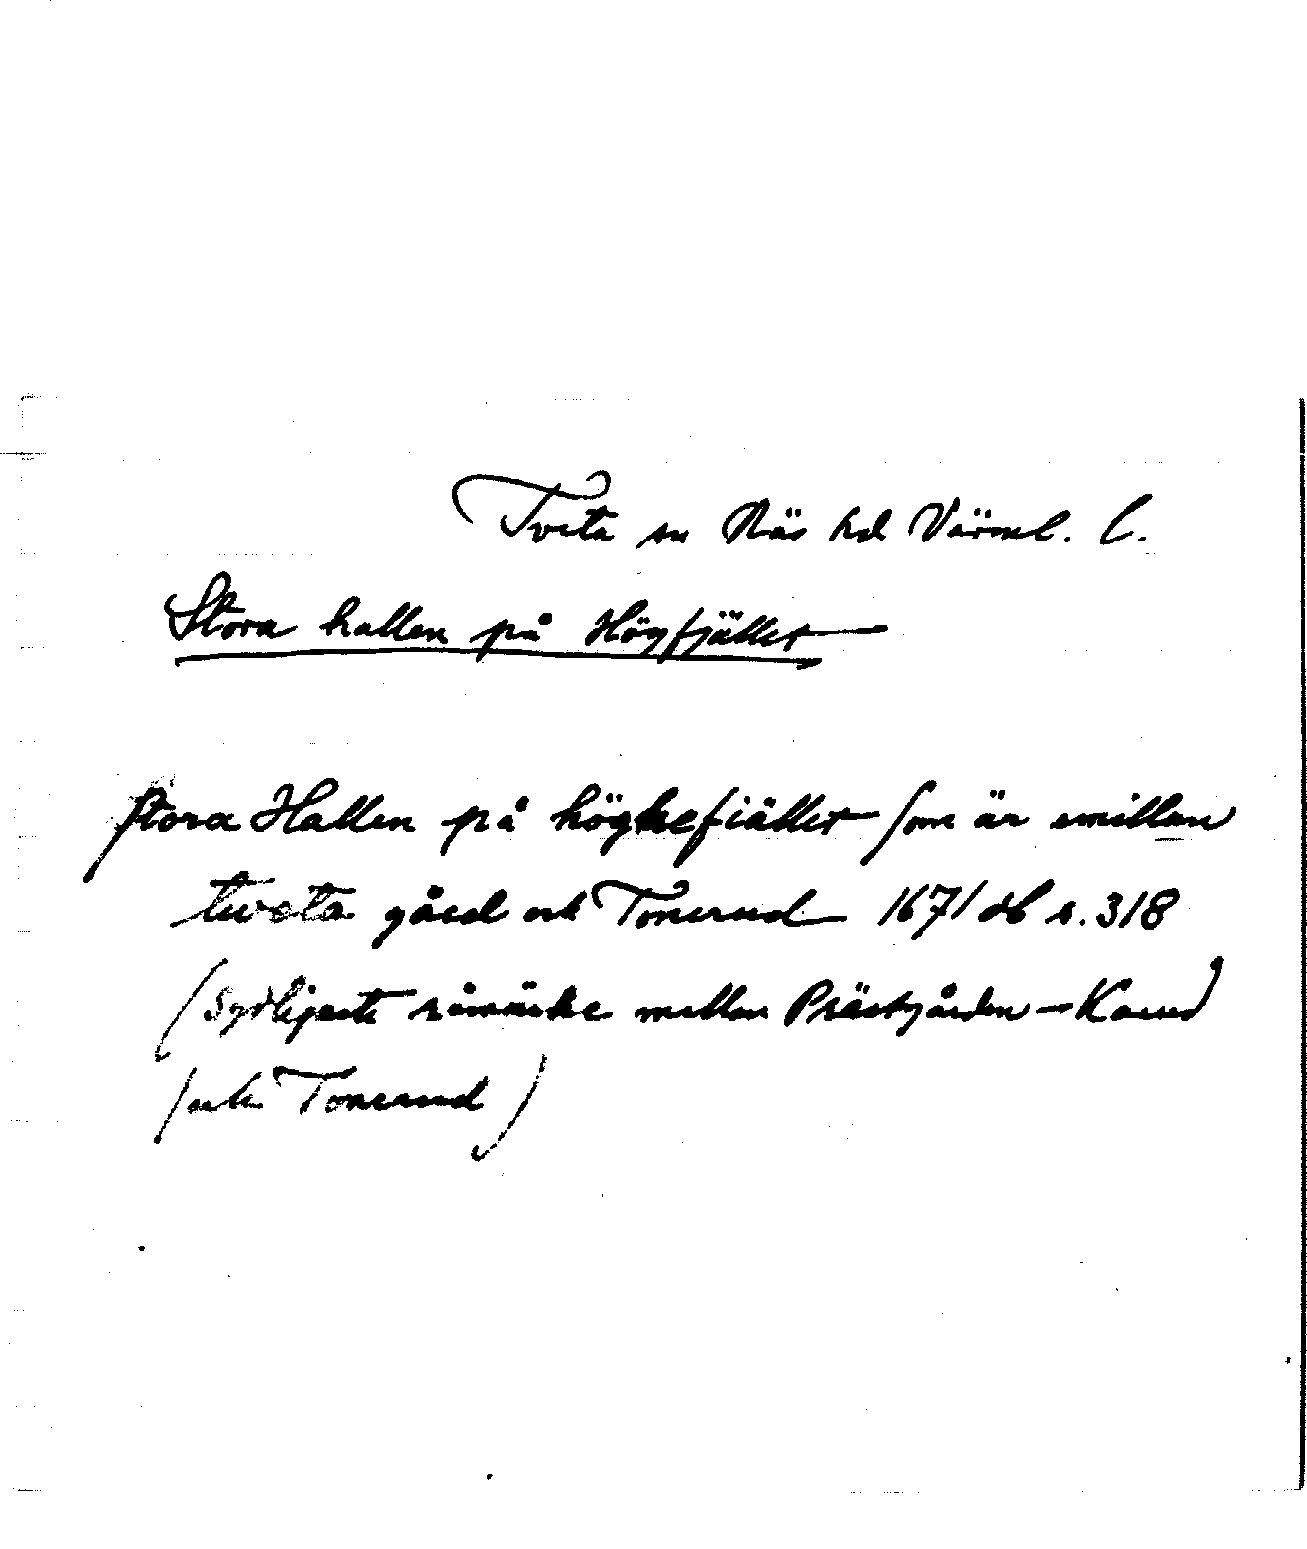 Tveta sn Näs hd Värml. l.
Stora hallen på Högfjället
stora Hallen på höghefiället som är emillan
tweta gård och Tonerud 1671 db s. 318
(Sydligaste råmärke mellan Prästgården - Karud)
(och Tonerud)